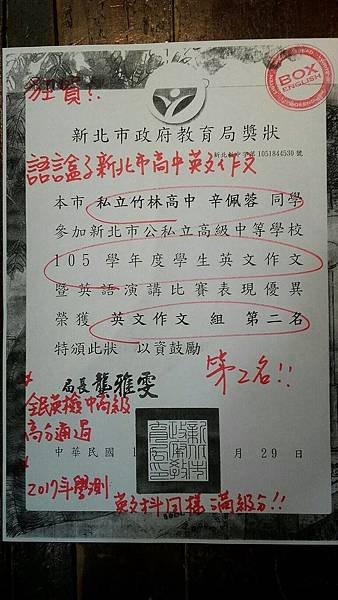 狂賀!!
BOX
ENGLISH
新北市政府教育局獎狀
1051844530 號
語言盒子新北市高中英文作文
本市 私立竹林高中 辛佩蓉 同學
參加新北市公私立高級中等學校
105 學年度學生英文作文
暨英語演講比賽表現優異
榮獲 英文作文 組 第二名
特頒此狀 以資鼓勵
第2名!!
局長 龔雅雯
全民英檢中高級
高分通過
新北市政府教育局印
中華民國 1 月 29 日
2017年學測
英文科同樣滿級分!!